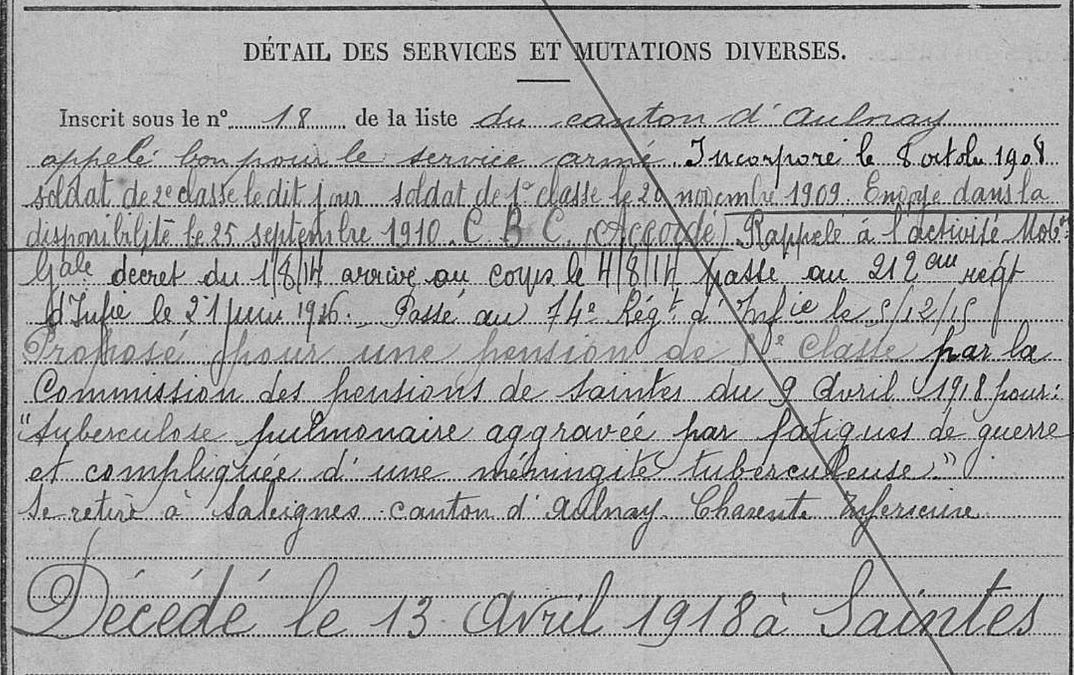 DÉTAIL DES SERVICES ET MUTATIONS DIVERSES.
Inscrit sous le n° 18 de la liste du canton d'Aulnay
appelé bon pour le service armé. Incorporé le 8 octobre 1908
soldat de 2e classe le dit jour soldat de 1re classe le 20 novembre 1909. Envoyé dans la
disponibilité le 25 septembre 1910. C B C. (Accordé) Rappelé à l'activité Mobon
Gale décret du 1/8/14 arrivé au corps le 4/8/14 passé au 212 au regt
d'Infie le 21 juin 1916. Passé au 74e Régt d'Infie le 5/12/15
Proposé pour une pension de classe par la
Commission des pensions de Saintes du 9 Avril 1918 pour:
"tuberculose pulmonaire aggravée par fatigues de guerre
et compliquée d'une méningite tuberculeuse."
Se retire à Saleignes canton d'Aulnay Charente Inférieure
Décédé le 13 Avril 1918 à Saintes